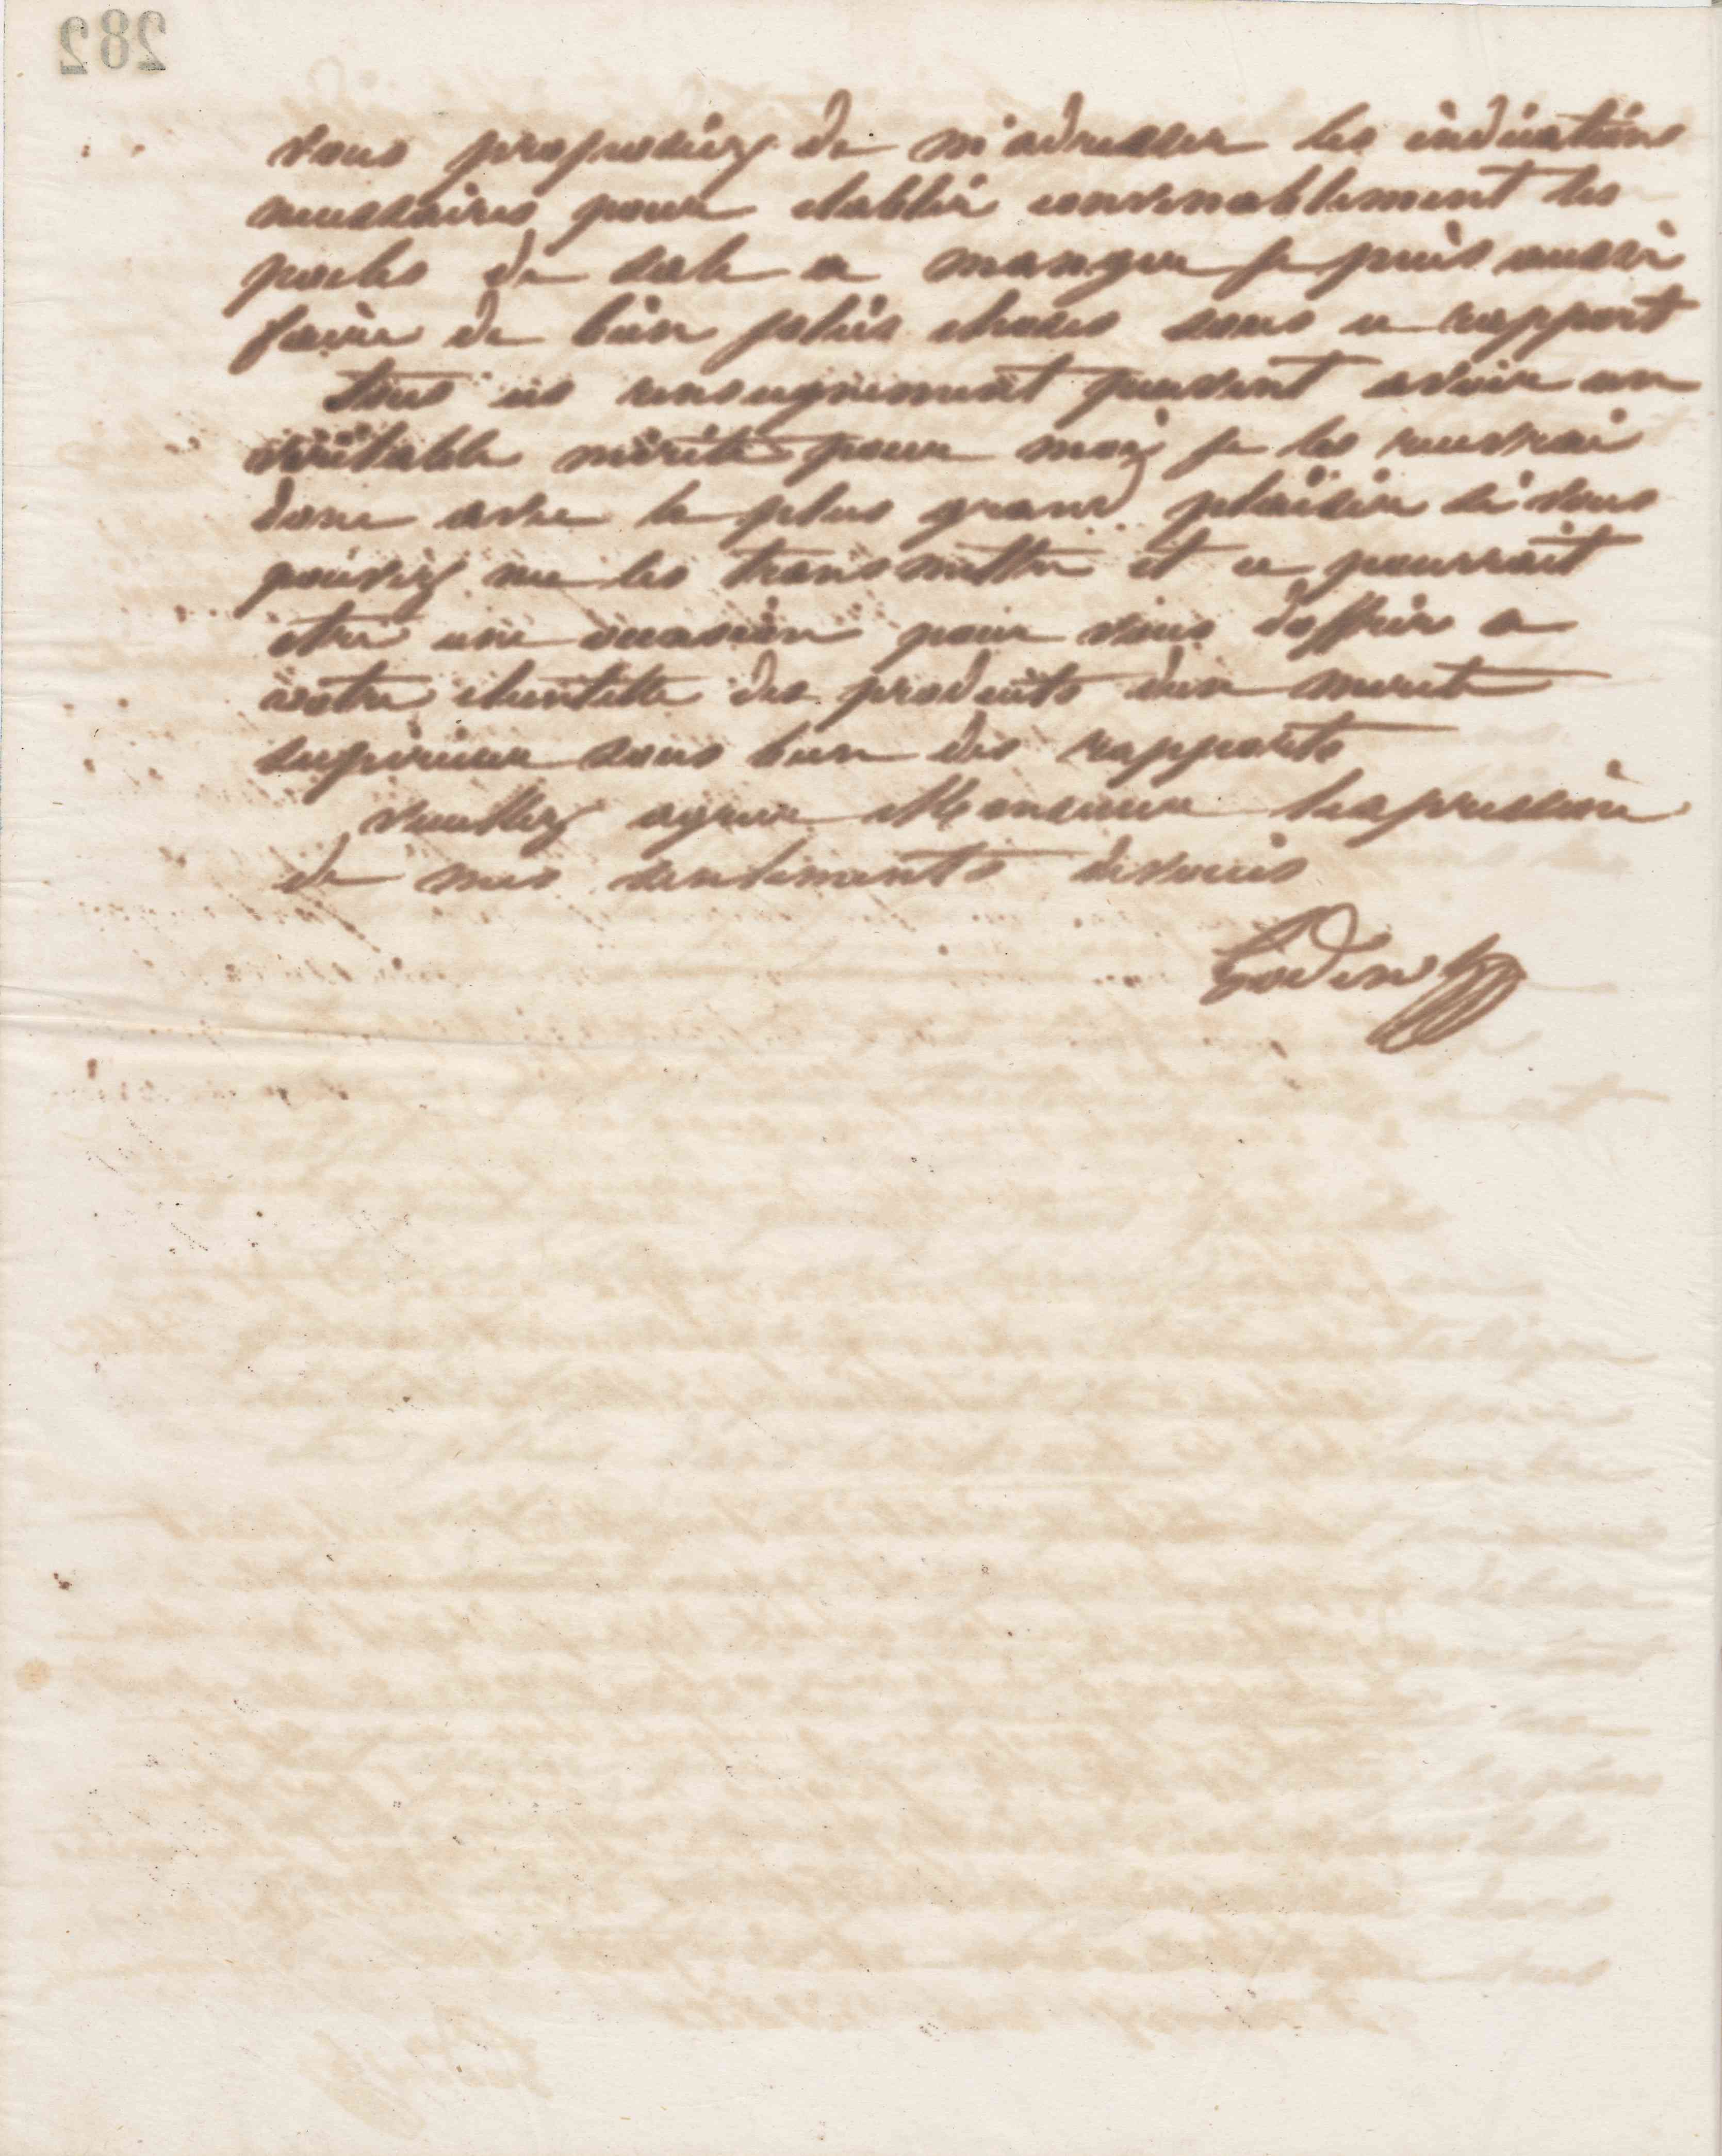 282
vous proposiez de m'adresser les indications
necessaires pour etablir convenablement les
poeles de sale a manger je puis aussi
faire de bien jolies choses sous ce rapport
Tous ces renseignement peuvent avoir un
veritable mérite pour moi je les recevrai
donc avec le plus grand plaisir si vous
pouviez me les transmettre et ce pourrait
etre une occasion pour vous doffrir a
votre clientelle des produits dun merite
superieur sous bien des rapports
veuillez agreer Monsieur lexpression
de mes sentiments devoués
Godin